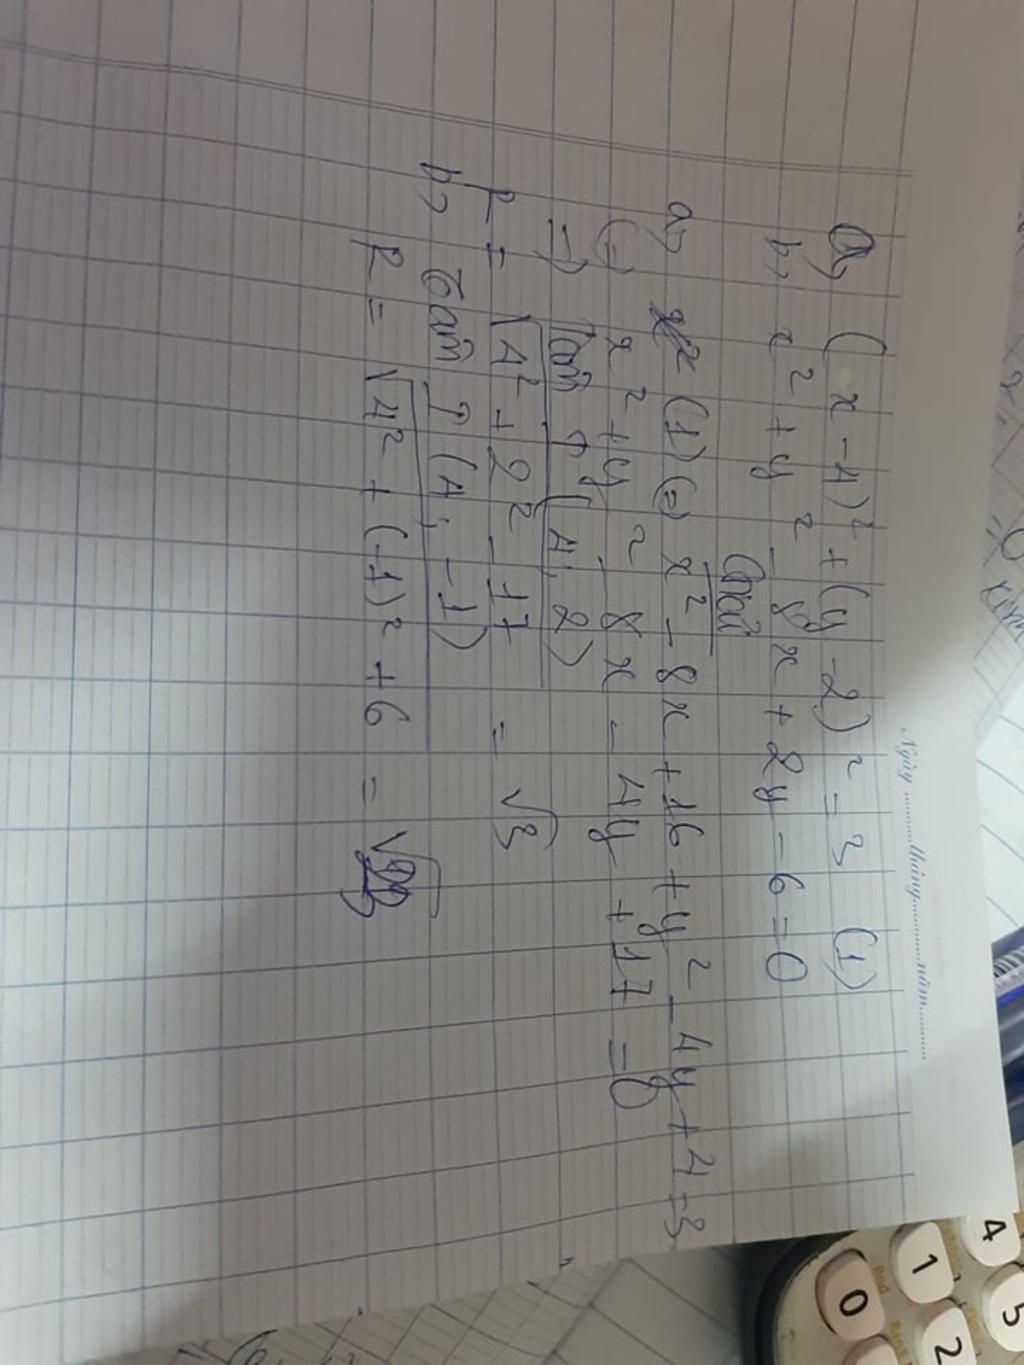 Ngày.........tháng.........năm.........
a, (x - 4)² + (y - 2)² = 3 (1)
b, x² + y² - 8x + 2y - 6 = 0
Giải
a, (1) (=) x² - 8x + 16 + y² - 4y + 4 = 3
(=) x² + y² - 8x - 4y + 17 = 0
=) Tâm I (4; 2)
R = √4² + 2² - 17 = √3
b, Tâm I (4; -1)
R = √4² + (-1)² + 6 =
4
5
1
2
0